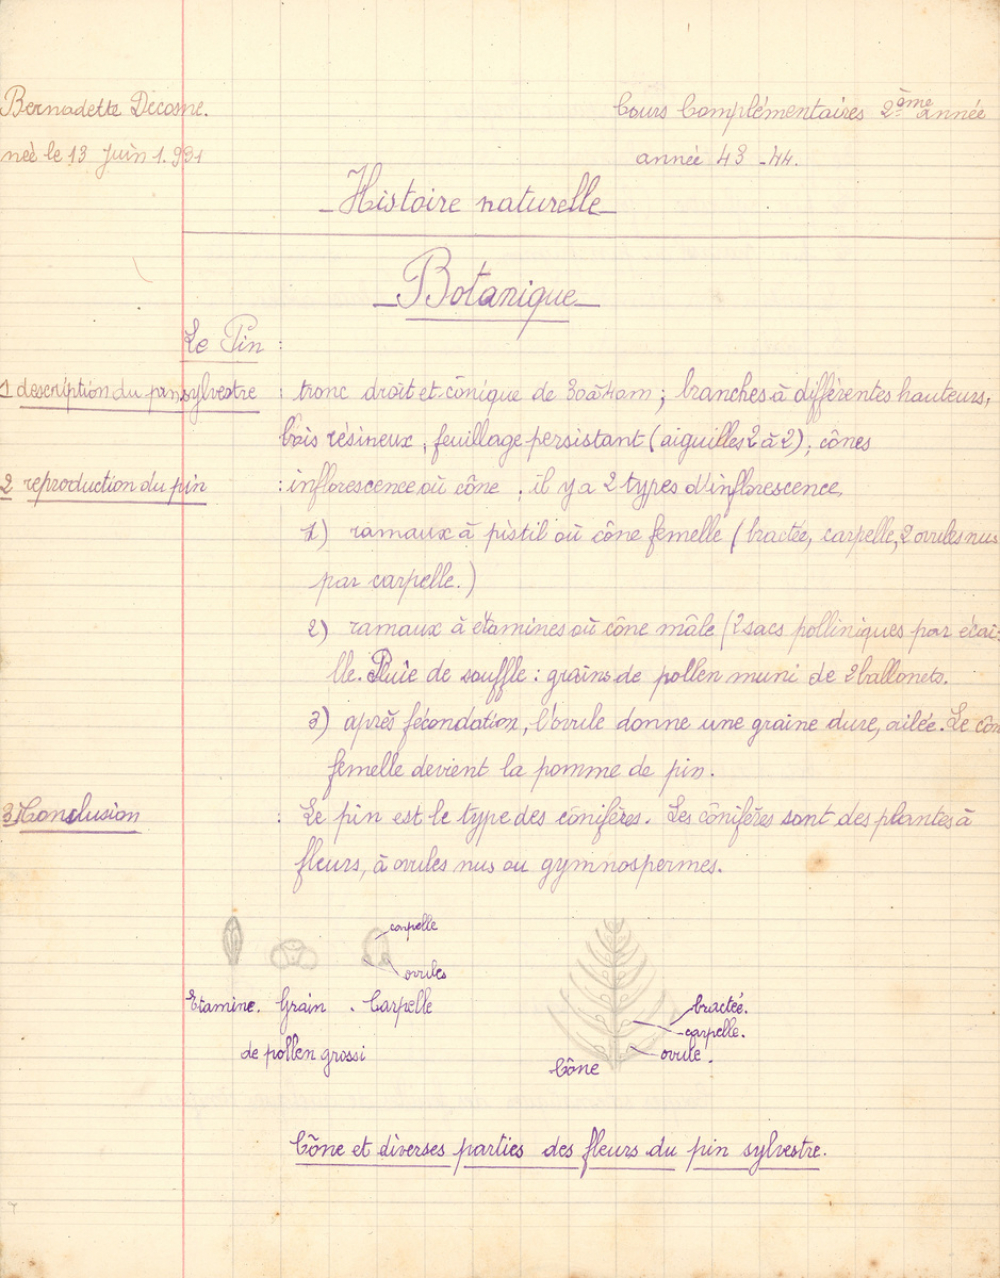 Bernadette Decosne.
Cours Complémentaires 2ème année
née le 13 Juin 1.931
année 43-44.
Histoire naturelle
Botanique
Le Pin :
1 description du pin sylvestre : tronc droit et cônique de 30 à 40m ; branches à différentes hauteurs,
bois résineux ; feuillage persistant (aiguilles 2 à 2) ; cônes
2 reproduction du pin : inflorescence où cône ; il y a 2 types d'inflorescence,
1) ramaux à pistil où cône femelle (bractée, carpelle, 2 ovules nus
par carpelle.)
2) ramaux à étamines où cône mâle (2 sacs polliniques par écai-
lle. Pluie de souffle : grains de pollen muni de 2 ballonets.
3) après fécondation, l'ovule donne une graine dure, ailée. Le côn
femelle devient la pomme de pin.
3 Conclusion : Le pin est le type des cônifères. Les cônifères sont des plantes à
fleurs, à ovules nus ou gymnospermes.
carpelle
ovules
Etamine. Grain . Carpelle
de pollen grossi
bractée.
carpelle.
ovule.
Cône
Cône et diverses parties des fleurs du pin sylvestre.